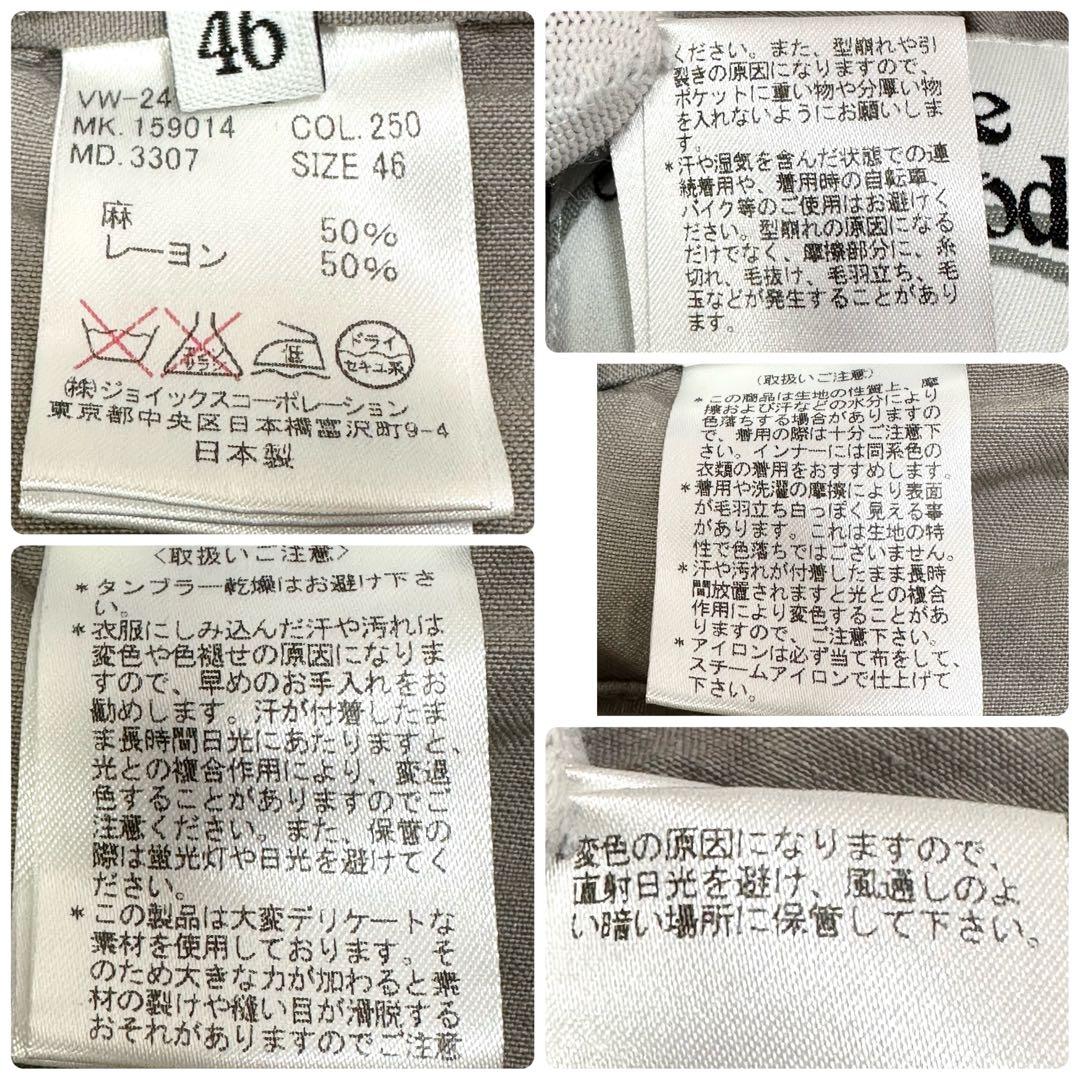 46
VW-24
MK. 159014 COL. 250
MD. 3307 SIZE 46
麻 50%
レーヨン 50%
低
ドライ
セキユ系
(株)ジョイックスコーポレーション
東京都中央区日本橋富沢町9-4
日本製
ください。また、型崩れや引
裂きの原因になりますので、
ポケットに重い物や分厚い物
を入れないようにお願いしま
す。
*汗や湿気を含んだ状態での連
続着用や、着用時の自転車、
バイク等のご使用はお避けく
ださい。型崩れの原因になる
だけでなく、摩擦部分に、糸
切れ、毛抜け、毛羽立ち、毛
玉などが発生することがあり
ます。
e
od
〈取扱いご注意〉
*この商品は生地の性質上、摩
擦および汗などの水分により
色落ちする場合がありますの
で、着用の際は十分ご注意下
さい。インナーには同系色の
衣類の着用をおすすめします。
*着用や洗濯の摩擦により表面
が毛羽立ち白っぽく見える事
があります。これは生地の特
性で色落ちではございません。
*汗や汚れが付着したまま長時
間放置されますと光との複合
作用により変色することがあ
りますので、ご注意下さい。
*アイロンは必ず当て布をして、
スチームアイロンで仕上げて
下さい。
〈取扱いご注意〉
*タンブラー乾燥はお避け下さ
い。
*衣服にしみ込んだ汗や汚れは
変色や色褪せの原因になりま
すので、早めのお手入れをお
勧めします。汗が付着したま
ま長時間日光にあたりますと、
光との複合作用により、変退
色することがありますのでご
注意ください。また、保管の
際は蛍光灯や日光を避けてく
ださい。
*この製品は大変デリケートな
素材を使用しております。そ
のため大きな力が加わると素
材の裂けや縫い目が滑脱する
おそれがありますのでご注意
変色の原因になりますので、
直射日光を避け、風通しのよ
い暗い場所に保管して下さい。